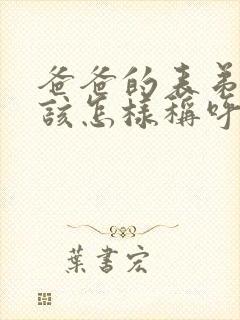 爸爸的表弟
該怎樣稱呼
葉書宏